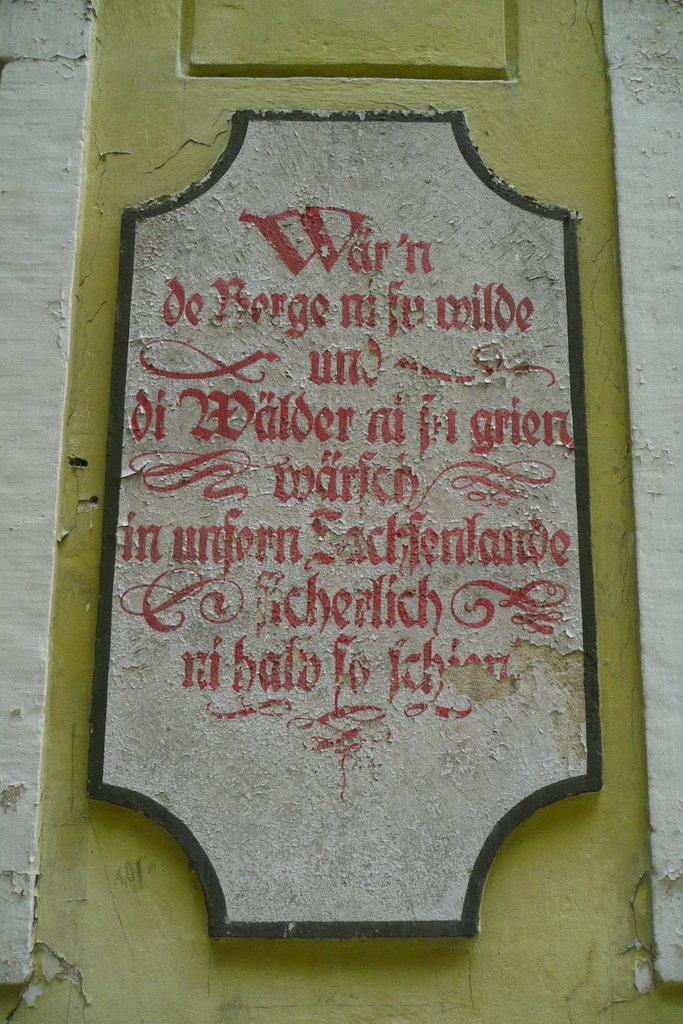 Wär'n
de Berge ni so wilde
und
di Wälder ni so grien
wärsch
in unsern Sachsenlande
sicherlich
ni hald so schien